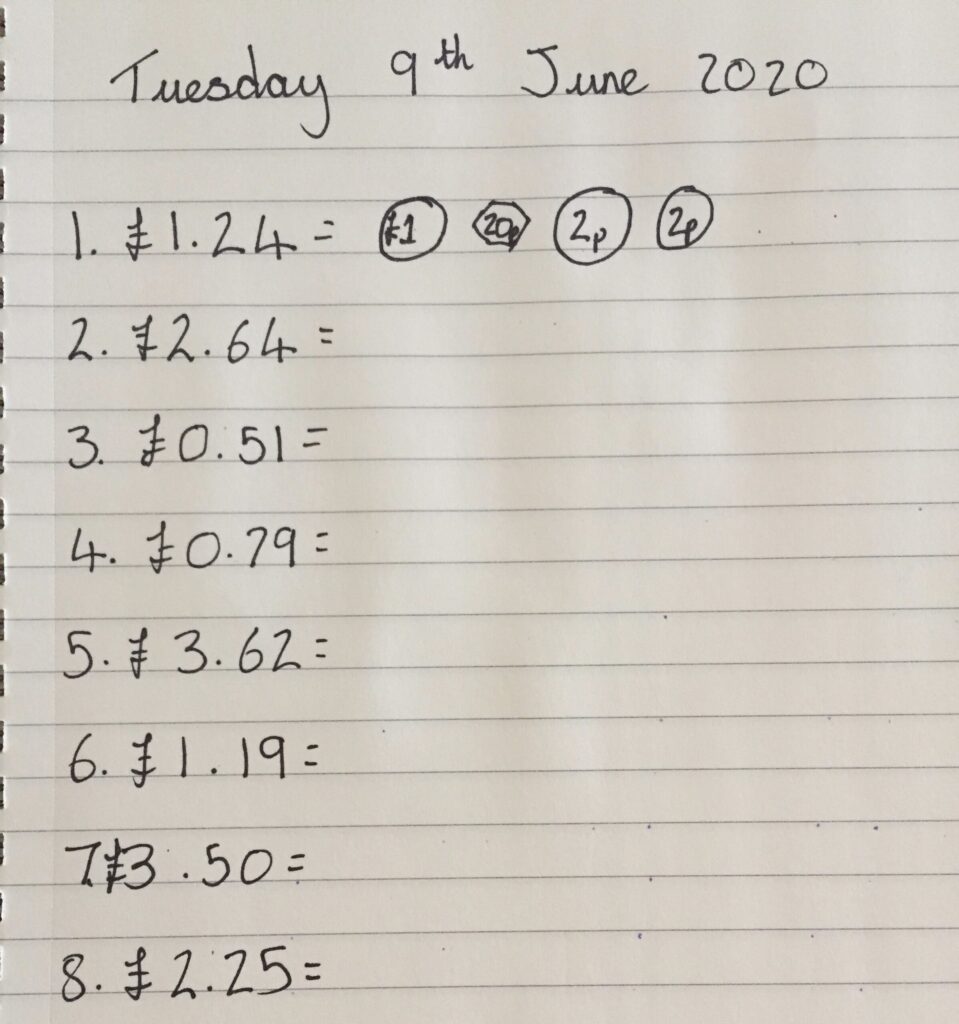 Tuesday 9th June 2020
1. £1.24 = £1 20p 2p 2p
2. £2.64 =
3. £0.51 =
4. £0.79 =
5. £3.62 =
6. £1.19 =
7. £3.50 =
8. £2.25 =